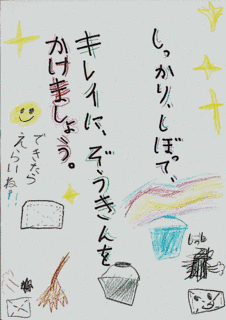 しっかり、しぼって、
キレイに、ぞうきんを
かけましょう。
できたら
えらいね!!